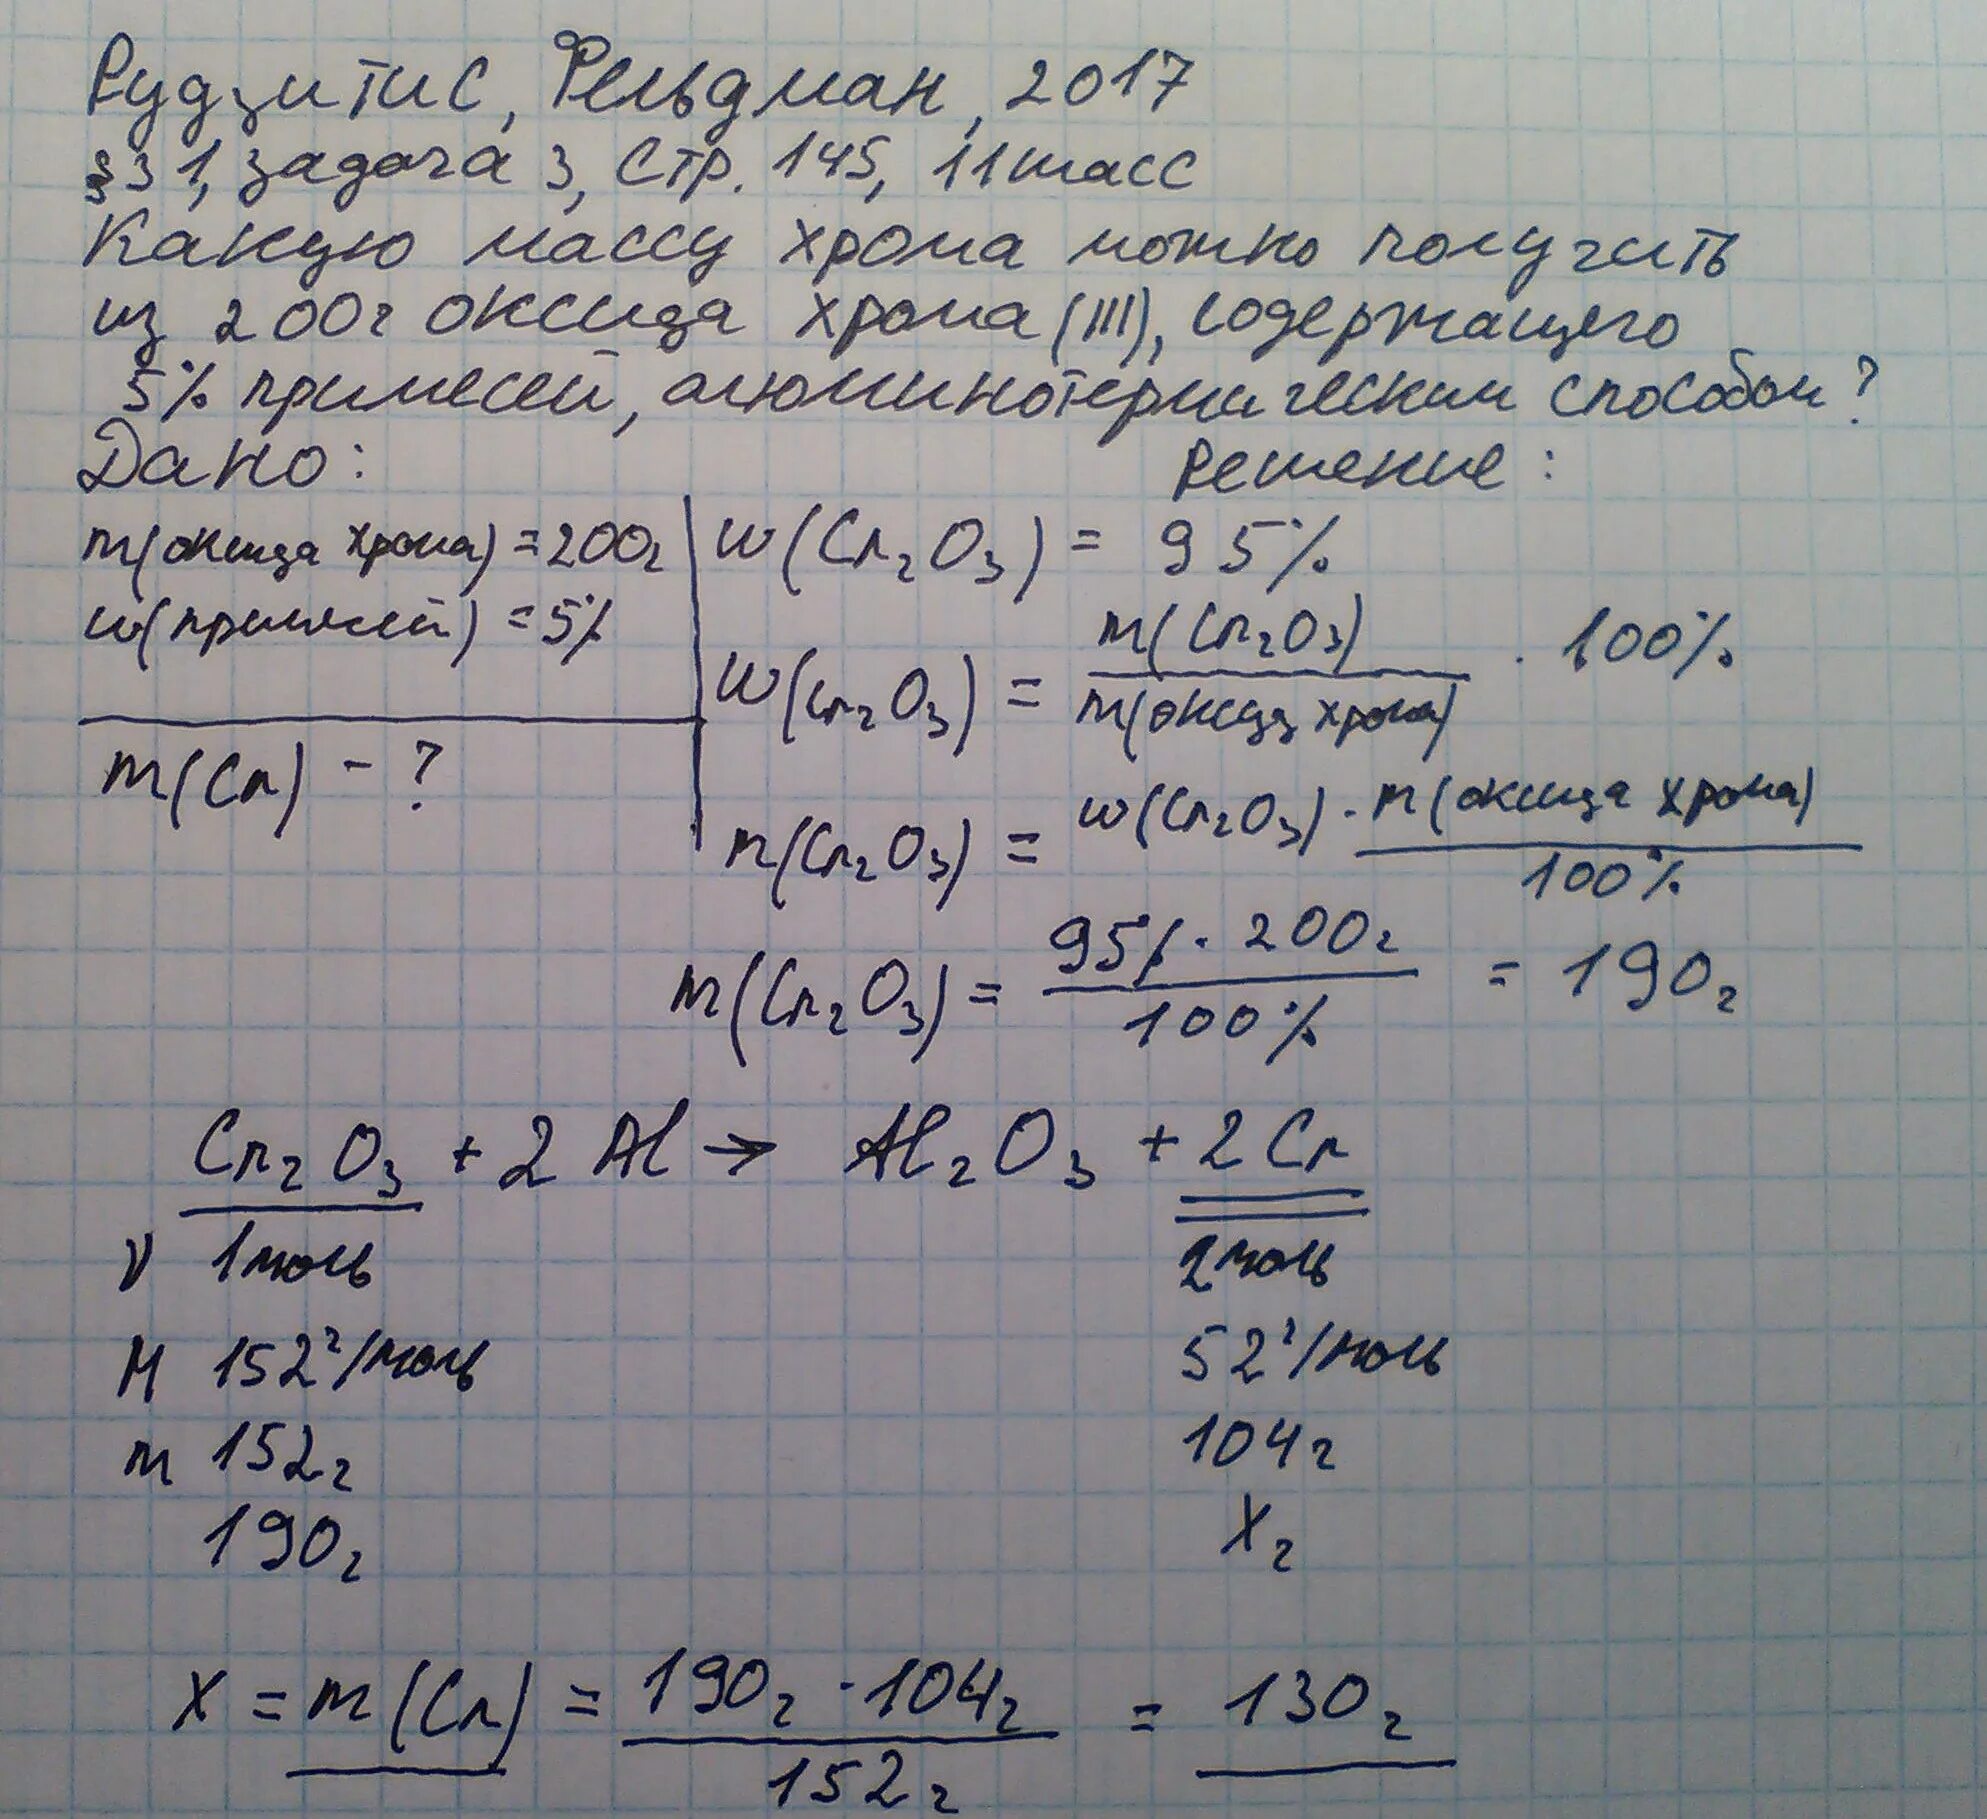 Рудзитис, Фельдман, 2017
§31, задача 3, стр. 145, 11 класс
Какую массу хрома можно получить
из 200г оксида хрома (III), содержащего
5% примесей, алюминотермическим способом?
Дано: Решение:
m(оксида хрома) = 200г
w(примесей) = 5%
m(Cr) - ?
w(Cr₂O₃) = 95%
w(Cr₂O₃) = m(Cr₂O₃) / m(оксида хрома) · 100%
m(Cr₂O₃) = w(Cr₂O₃) · m(оксида хрома) / 100%
m(Cr₂O₃) = 95% · 200г / 100% = 190г
Cr₂O₃ + 2Al → Al₂O₃ + 2Cr
ν 1моль 2моль
M 152 г/моль 52 г/моль
m 152г 104г
190г Xг
X = m(Cr) = 190г · 104г / 152г = 130г